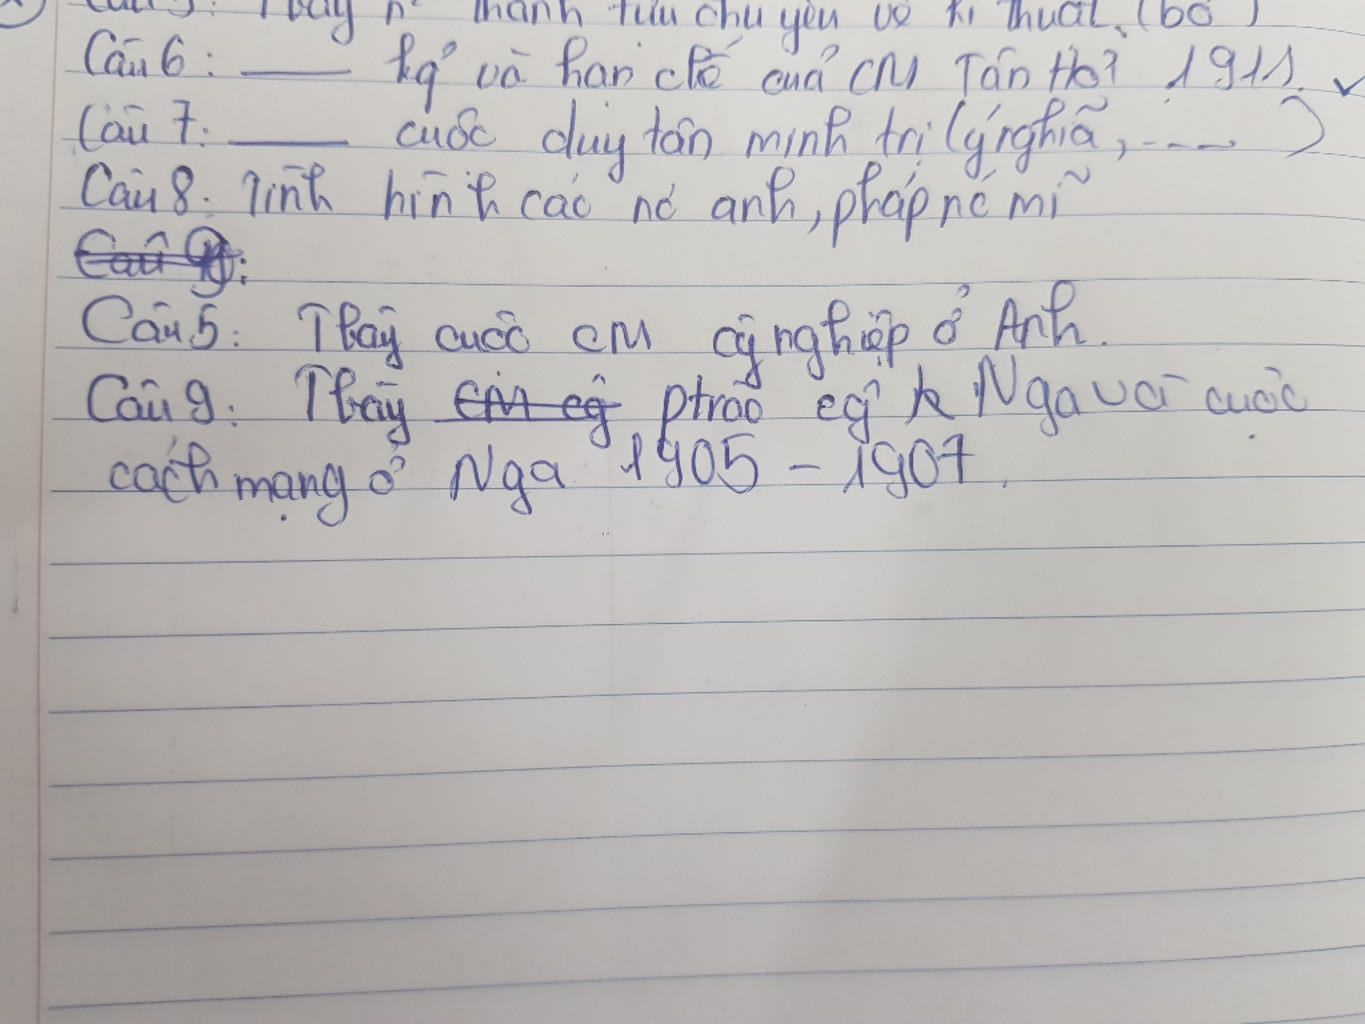 Câu 5: Tbày n~ thành tựu chủ yếu về kĩ thuật. (bỏ)
Câu 6: —— kq' và hạn chế của CM Tân Hợi 1911.
Câu 7: —— cuộc duy tân minh trị (ý nghĩa, .... )
Câu 8: Tình hình các nc' anh, pháp nc' mĩ
Câu 9:
Câu 5: Tbày cuộc CM cg nghiệp ở Anh.
Câu 9: Tbày CM cg ptrào cg Nga và cuộc
cách mạng ở Nga 1905 - 1907.